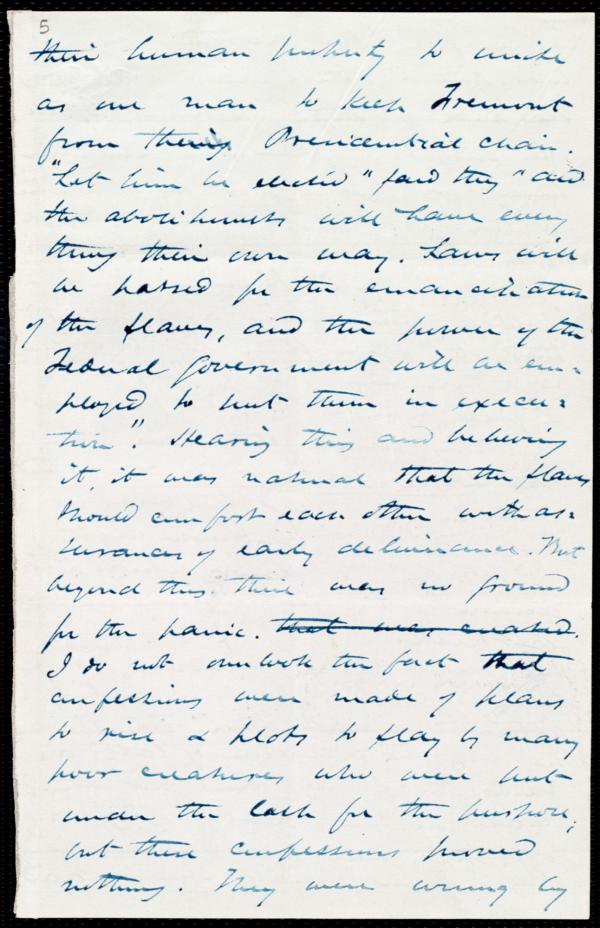 5
their human property to unite
as one man to keep Fremont
from the Presidential chair.
"Let him be elected" said they "and
the abolitionists will have every
thing their own way. Laws will
be passed for the emancipation
of the slaves, and the power of the
Federal Government will be em=
ployed to put them in execu=
tion". Hearing this and believing
it, it was natural that the slaves
should comfort each other with as=
surances of early deliverance. But
beyond this there was no ground
for the panic. that was created.
I do not overlook the fact that
confessions were made of plans
to rise & plots to slay by many
poor creatures who were put
under the lash for the purpose;
but these confessions proved
nothing. They were wrung by